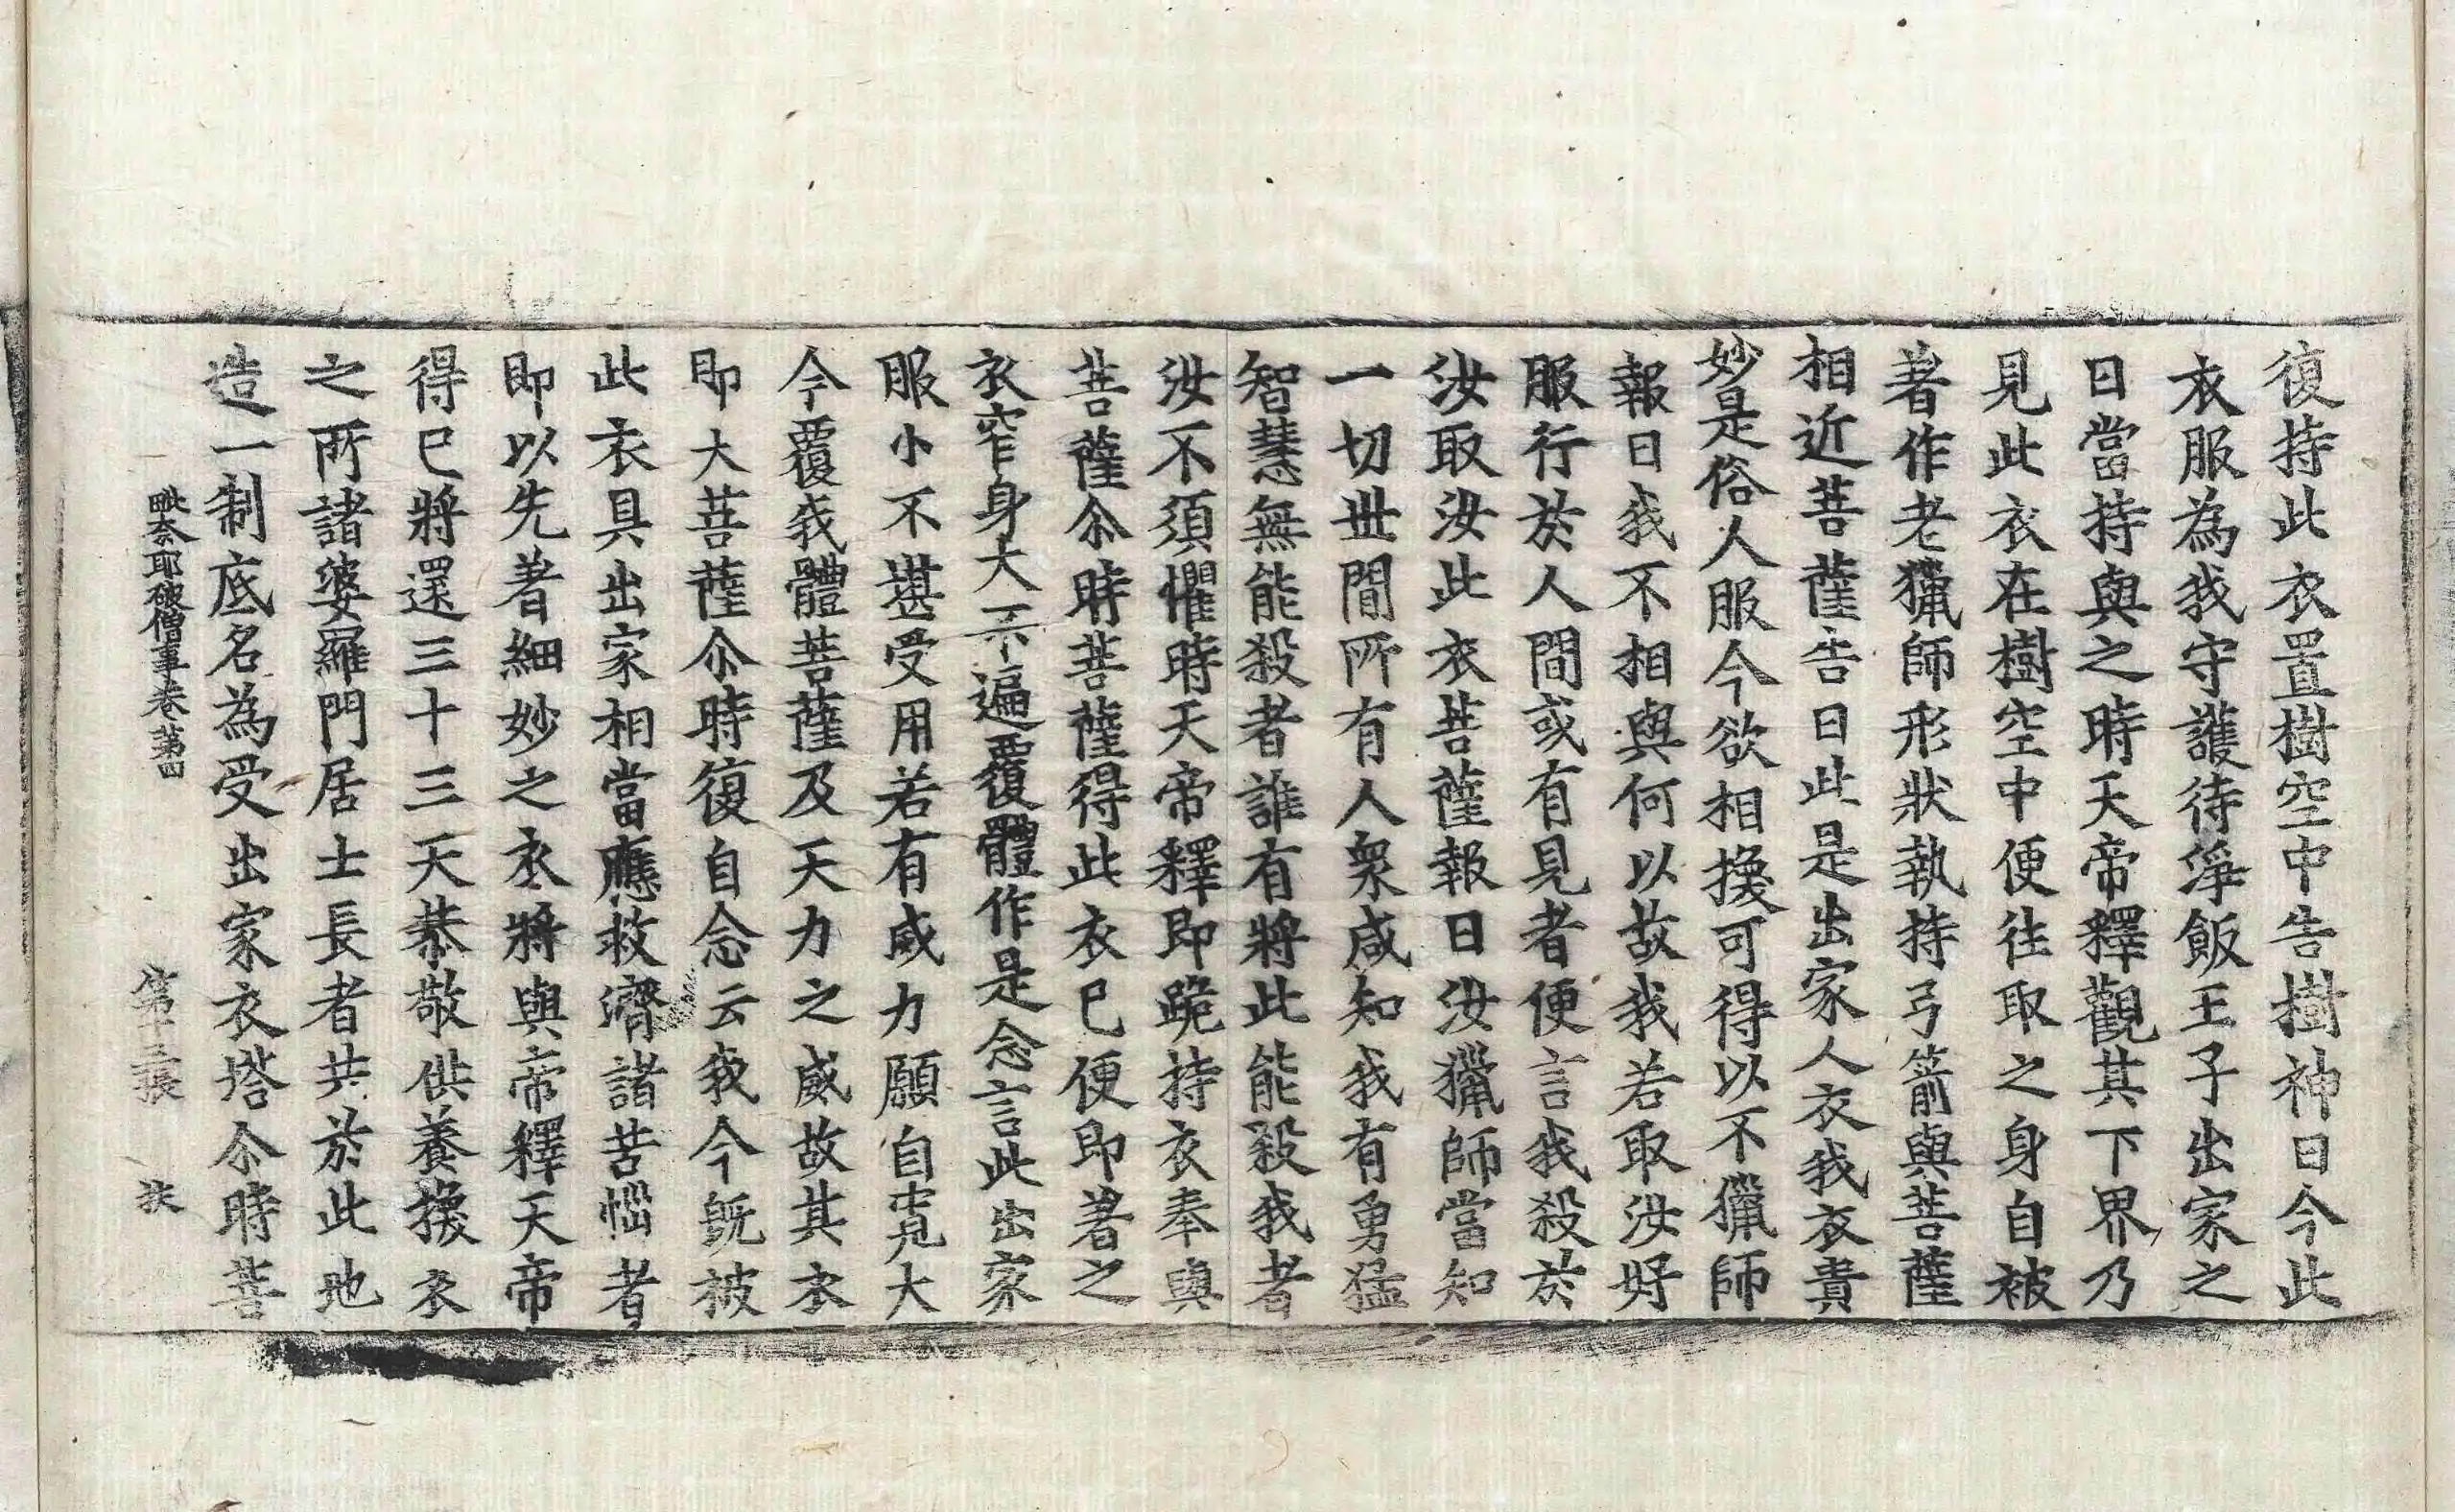 復持此衣置樹空中告樹神曰今此
衣服為我守護待淨飯王子出家之
日當持與之時天帝釋觀其下界乃
見此衣在樹空中便往取之身自被
著作老獵師形狀執持弓箭與菩薩
相近菩薩告曰此是出家人衣我衣貴
妙是俗人服今欲相換可得以不獵師
報曰我不相與何以故我若取汝好
服行於人間或有見者便言我殺於
汝取汝此衣菩薩報曰汝獵師當知
一切世間所有人衆咸知我有勇猛
智慧無能殺者誰有將此能殺我者
汝不須懼時天帝釋即跪持衣奉與
菩薩尒時菩薩得此衣已便即著之
衣窄身大不遍覆體作是念言此出家
服小不堪受用若有威力願自寬大
今覆我體菩薩及天力之威故其衣
即大菩薩尒時復自念云我今旣被
此衣具出家相當應救濟諸苦惱者
即以先著細妙之衣將與帝釋天帝
得已將還三十三天恭敬供養換衣
之所諸婆羅門居士長者共於此地
造一制底名為受出家衣塔尒時菩
毗奈耶破僧事卷第四 第十三張